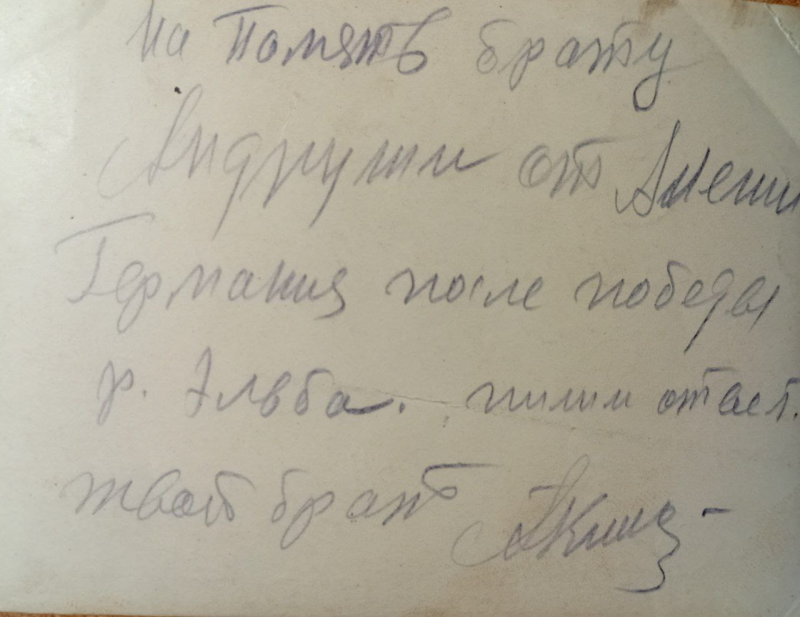 На Память брату
Андруши от
Германия после победы
р. Эльба. пиши ответ.
твой брат